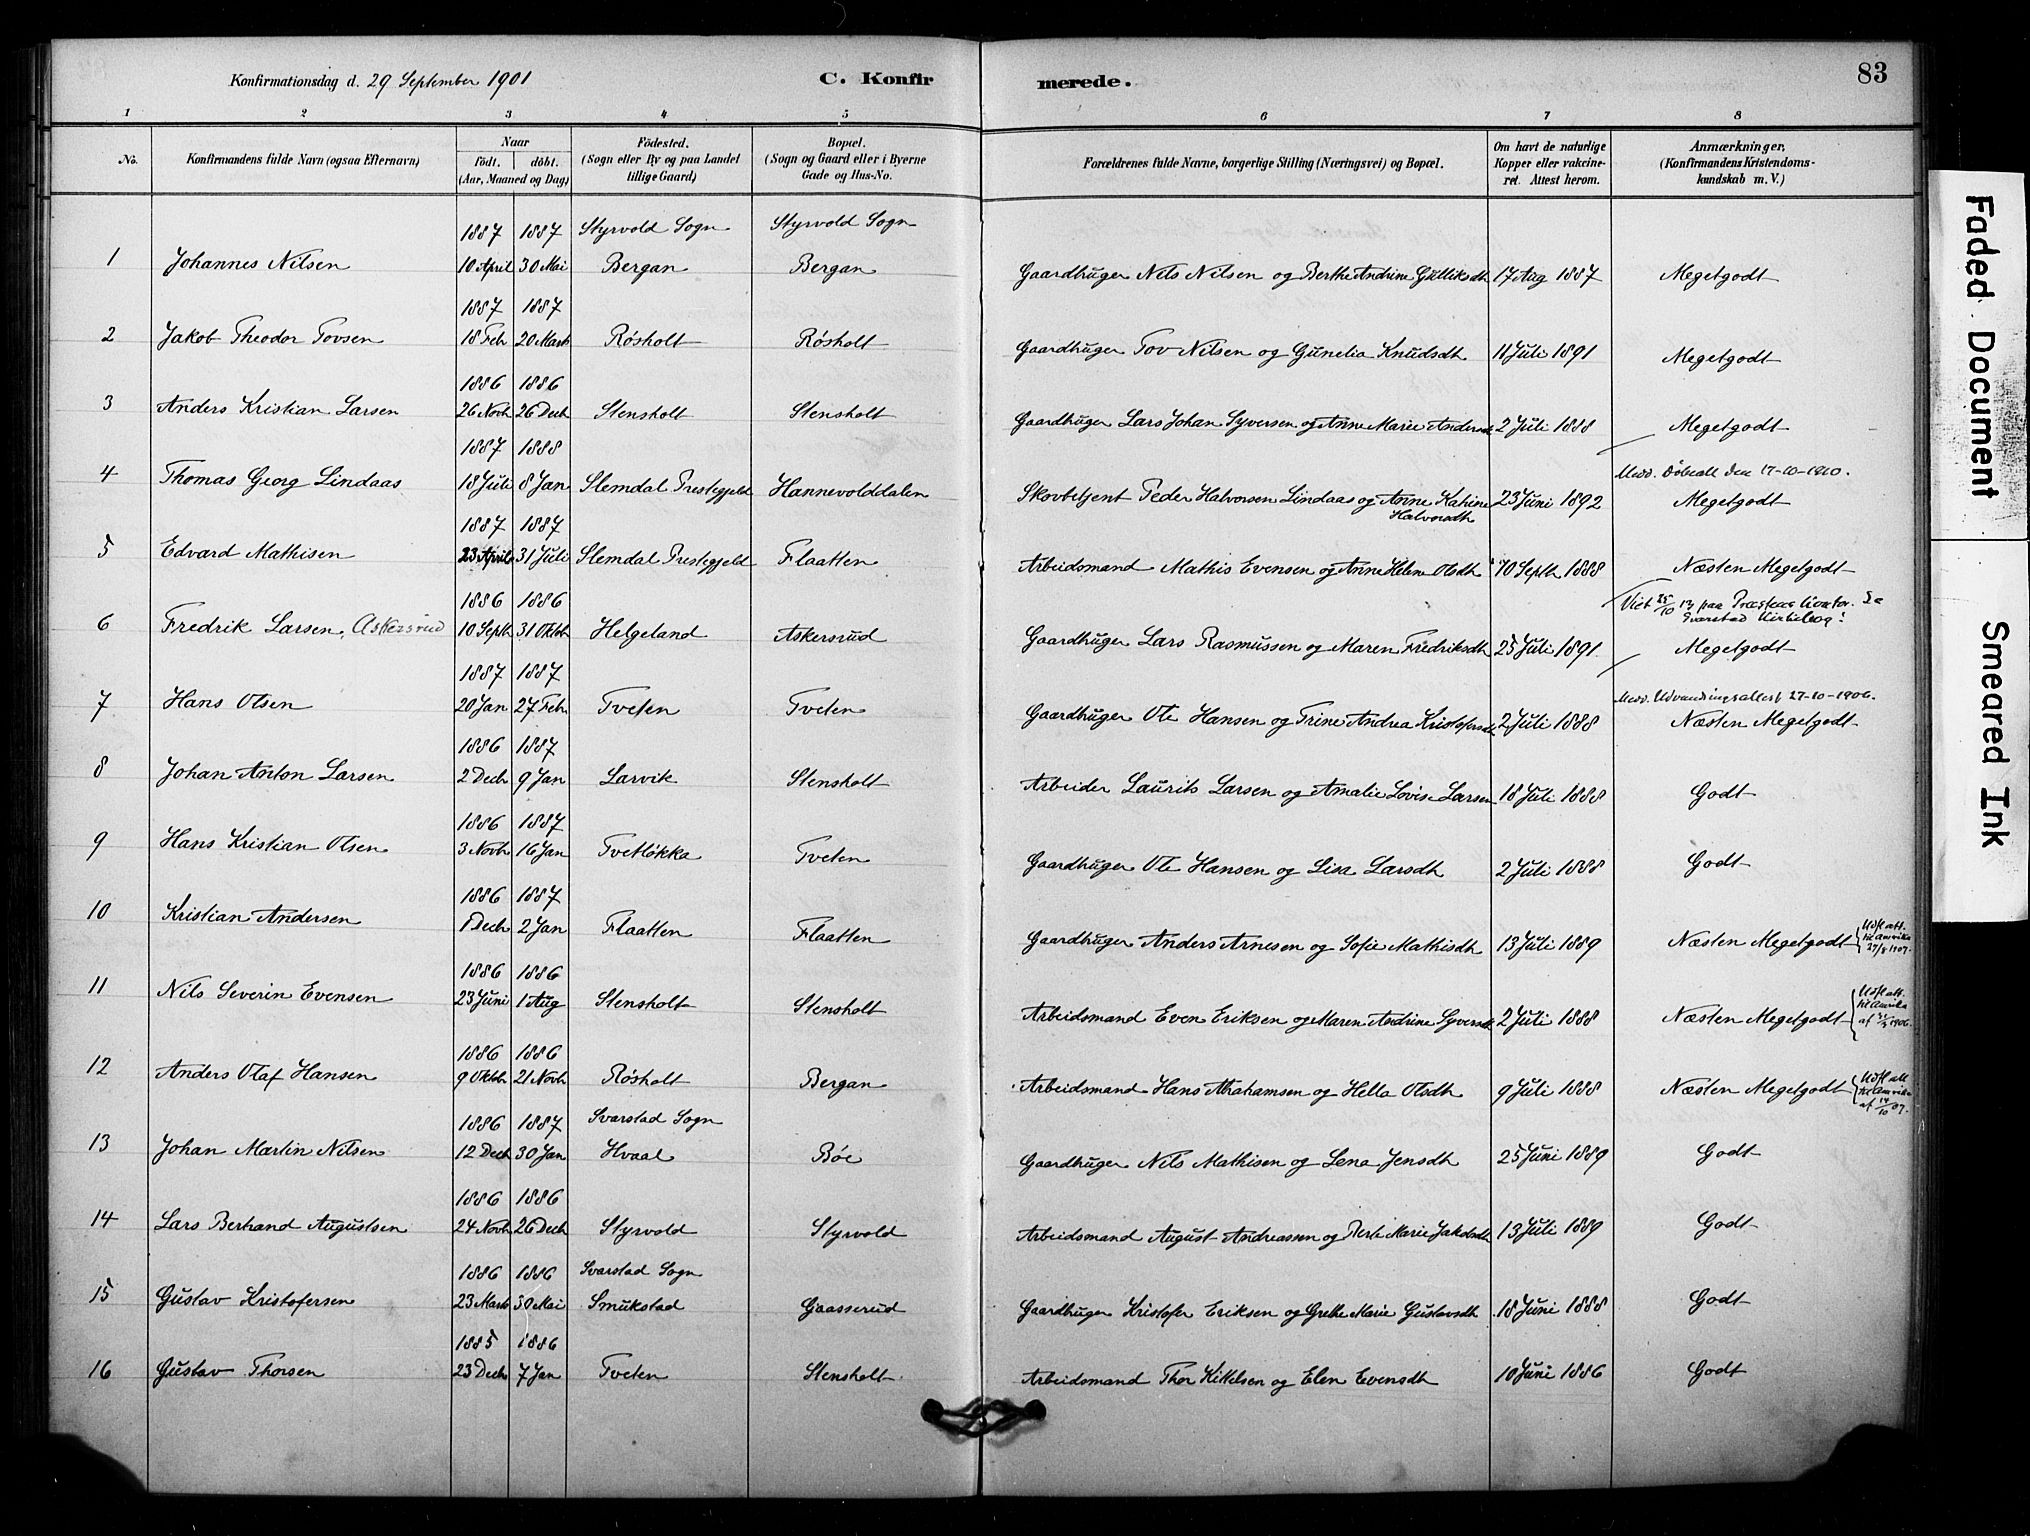 Konfirmationsdag d. 29 September 1901 C. Konfirmerede. 83
1 2 3 4 5 6 7 8
No. Konfirmandens fulde Navn (ogsaa Efternavn) Naar födt. döbt. (Aar, Maaned og Dag) Födested. (Sogn eller By og paa Landet tillige Gaard) Bopæl. (Sogn og Gaard eller i Byerne Gade og Hus-No. Forældrenes fulde Navne, borgerlige Stilling (Næringsvei) og Bopæl. Om havt de naturlige Kopper eller vakcineret. Attest herom. Anmærkninger. (Konfirmandens Kristendomskundskab m. V.)
1887 1887 Styrvold Sogn Styrvold Sogn
1 Johannes Nilsen 10 April 30 Mai Bergan Bergan Gaardbruger Nils Nilsen og Berthe Andrine Gulliksdh 17 Aug 1887 Megetgodt
1887 1887
2 Jakob Theodor Tovsen 18 Feb 20 Marts Røsholt Røsholt Gaardbruger Tov Nilsen og Gunelia Knudsdh 11 Juli 1891 Megetgodt
1886 1886
3 Anders Kristian Larsen 26 Novb 26 Decb Stensholt Stensholt Gaardbruger Lars Johan Syversen og Anne Marie Andersdh 2 Juli 1888 Megetgodt
1887 1888 Medd. Döbeatt den 17-10-1910.
4 Thomas Georg Lindaas 18 Juli 8 Jan Slemdal Prestegjeld Hannevolddalen Skovbetjent Peder Halvorsen Lindaas og Anne Katrine Halvorsdh 23 Juni 1892 Megetgodt
1887 1887
5 Edvard Mathisen 23 April 31 Juli Slemdal Prestegjeld Flaatten Arbeidsmand Mathis Evensen og Anne Helene Olsdh 10 Septb 1888 Næsten Megetgodt
1886 1886 Viet 25/10 13 paa Præstens kontor. Se Svarstad Kirkebog!
6 Fredrik Larsen, Askersrud 10 Septb 31 Oktbr Helgeland Askersrud Gaardbruger Lars Rasmussen og Maren Fredriksdh 25 Juli 1891. Megetgodt
1887 1887 Medd. Udvandringsattest 27-10-1906.
7 Hans Olsen 20 Jan 27 Febr Tveten Tveten Gaardbruger Ole Hansen og Trine Andrea Kristofersdh 2 Juli 1888 Næsten Megetgodt
1886 1887
8 Johan Anton Larsen 2 Decb 9 Jan Larvik Stensholt Arbeider Laurits Larsen og Amalie Lovise Larsen 18 Juli 1888 Godt
1886 1887
9 Hans Kristian Olsen 3 Novb 16 Jan Tvetløkka Tveten Gaardbruger Ole Hansen og Lisa Larsdh 2 Juli 1888 Godt
1886 1887
10 Kristian Andersen 1 Decb 2 Jan Flaatten Flaatten Gaardbruger Anders Arnesen og Sofie Mathisdh 13 Juli 1889 Næsten Megetgodt Udst att. til Amerika 27/8 1907.
1886 1886
11 Nils Severin Evensen 23 Juni 1 Aug Stensholt Stensholt Arbeidsmand Even Eriksen og Maren Andrine Syversdh 2 Juli 1888 Næsten Megetgodt Udst att. til Amrika af 31/3 1906.
1886 1886
12 Anders Olaf Hansen 9 Oktbr 21 Novb Røsholt Bergan Arbeidsmand Hans Abrahamsen og Hella Olsdh 9 Juli 1888 Næsten Megetgodt Udst att til Amrika af 14/10 07.
1886 1887 Svarstad Sogn
13 Johan Martin Nilsen 12 Decb 30 Jan Hvaal Bøe Gaardbruger Nils Mathisen og Lena Jensdh 25 Juni 1889 Godt
1886 1886
14 Lars Bertrand Augustsen 24 Novb 26 Decb Styrvold Styrvold Arbeidsmand August Andreassen og Berte Marie Jakobsdh 13 Juli 1889 Godt
1886 1886 Svarstad Sogn
15 Gustav Kristofersen 23 Marts 30 Mai Smukstad Gaasserud Gaardbruger Kristofer Eriksen og Grethe Marie Gustavsdh 18 Juni 1888 Godt
1885 1886
16 Gustav Thorsen 23 Decbr 7 Jan Tveten Stensholt Arbeidsmand Thor Kittelsen og Elen Evensdh 10 Juni 1886 Godt
Faded Document
Smeared Ink